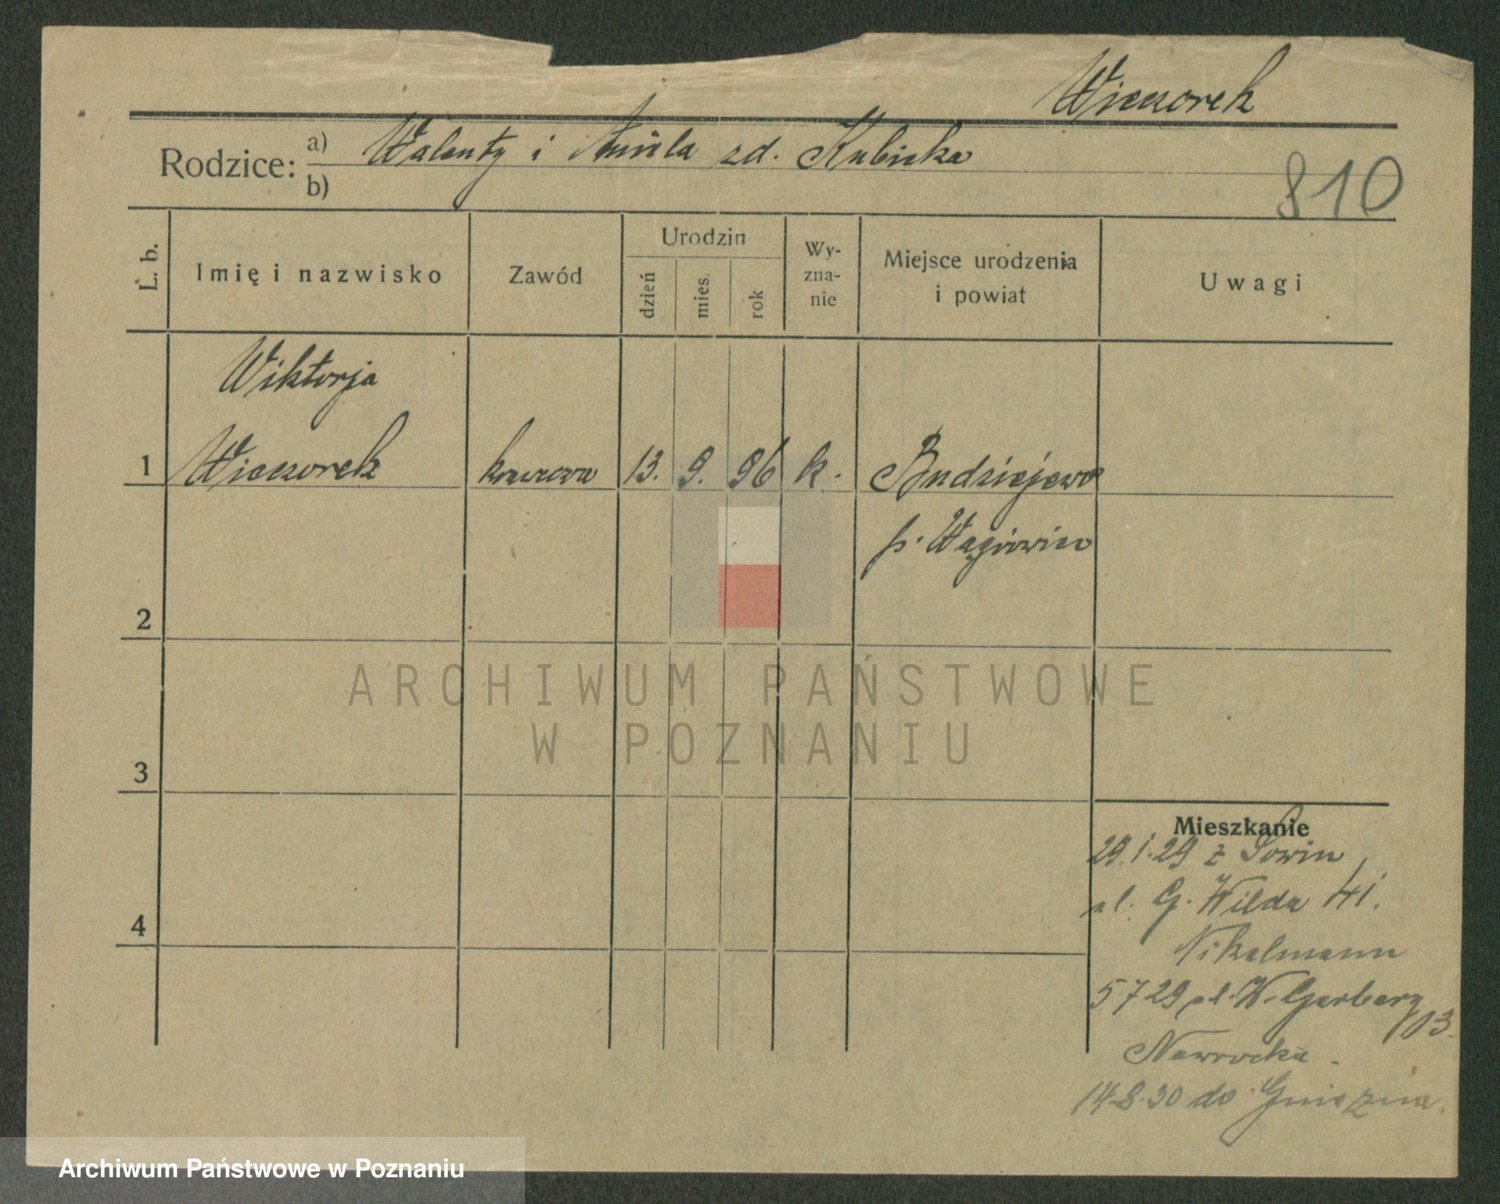 Wieczorek
Rodzice: a) Walenty i Aniela zd. Kubicka
b)
810
L. b.
Imię i nazwisko
Zawód
Urodzin
dzień
mies.
rok
Wy-
zna-
nie
Miejsce urodzenia
i powiat
Uwagi
Wiktorja
1 Wieczorek krawcowa 13. 9. 96 k. Budziejewo
p. Wągrowiec
2
ARCHIWUM PAŃSTWOWE
W POZNANIU
3
Mieszkanie
29.1.29 z
ul. G. Wilda 41.
Nikelmann
4
5 7 29 ul. W. Garbary
13.
Nawrocka
14.8.30 do Gniezna.
Archiwum Państwowe w Poznaniu